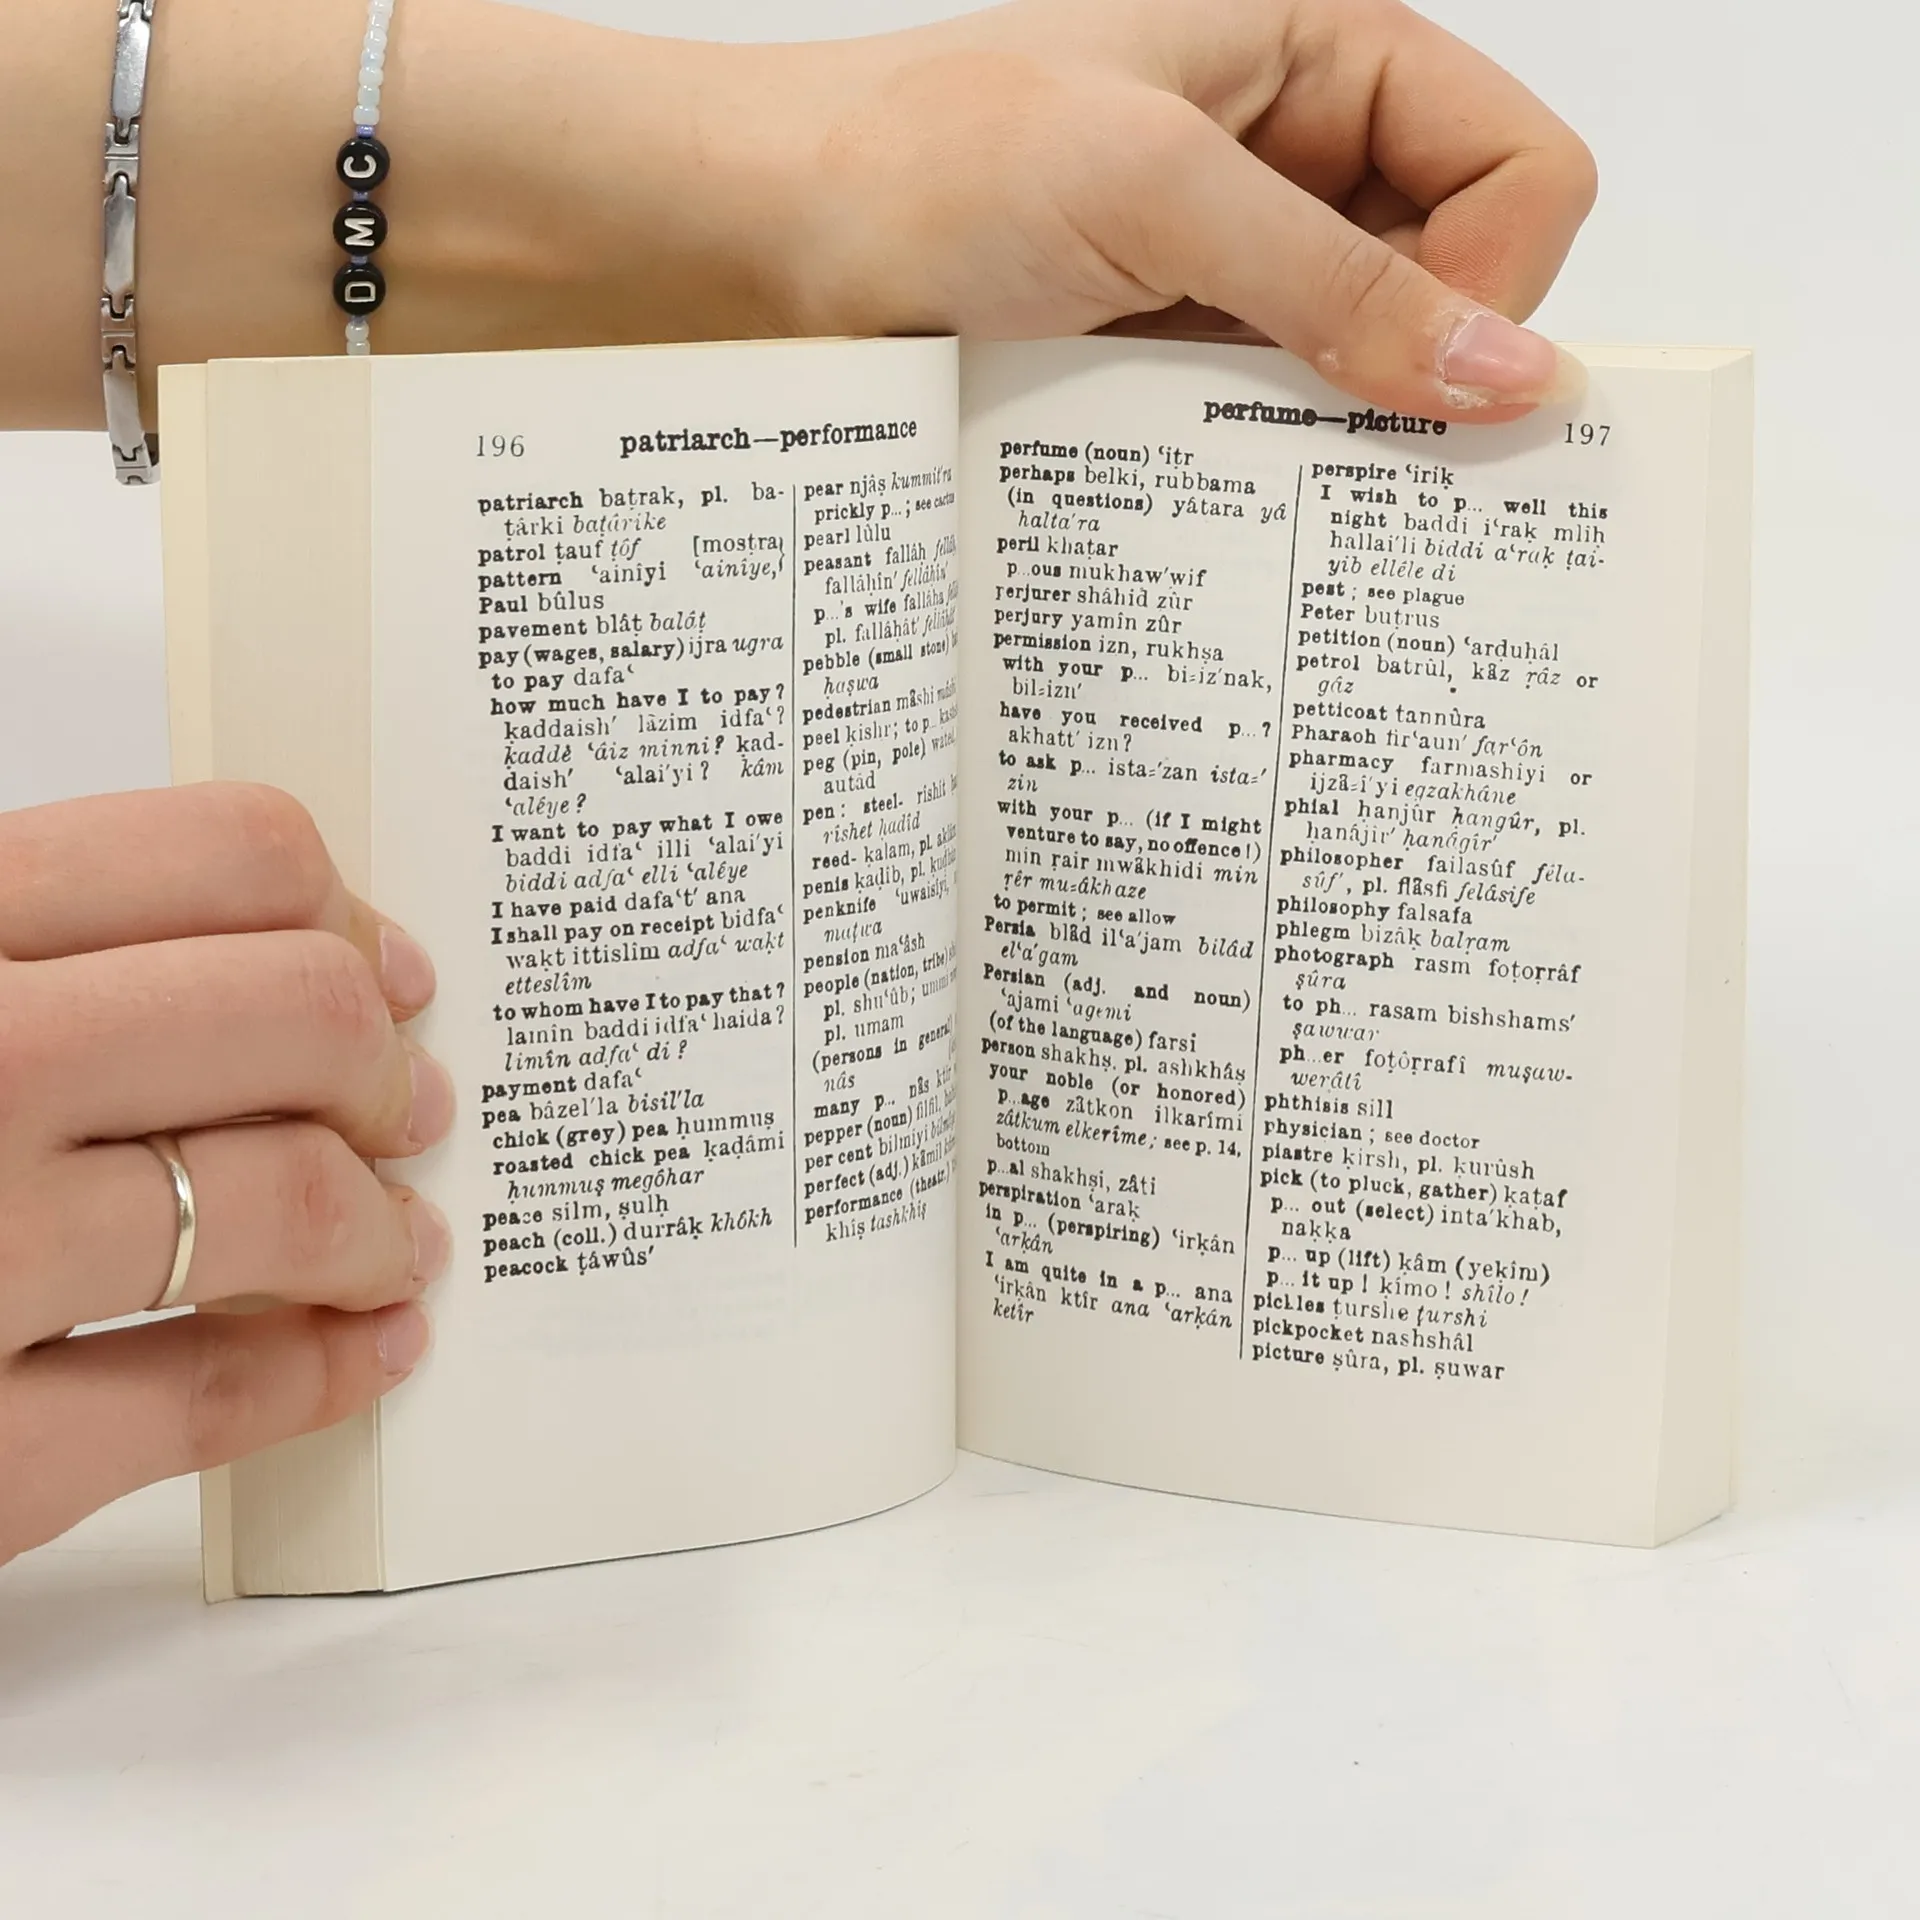 D M C
196 patriarch—performance
patriarch baṭrak, pl. ba-
ṭârki baṭârike
patrol ṭauf ṭôf [mosṭra
pattern ‘ainîyi ‘ainîye,
Paul bûlus
pavement blâṭ balâṭ
pay (wages, salary) ijra ugra
to pay dafa‘
how much have I to pay?
ḳaddaish′ lâzim idfa‘?
ḳaddê ‘âiz minni? ḳad-
daish′ ‘alai′yi? kâm
‘alêye?
I want to pay what I owe
baddi idfa‘ illi ‘alai′yi
biddi adfa‘ elli ‘alêye
I have paid dafa‘t′ ana
I shall pay on receipt bidfa‘
waḳt ittislîm adfa‘ waḳt
etteslîm
to whom have I to pay that?
lamîn baddi idfa‘ haida?
limîn adfa‘ di?
payment dafa‘
pea bâzel′la bisil′la
chick (grey) pea ḥummuṣ
roasted chick pea ḳaḍâmi
ḥummuṣ megôhar
peace silm, ṣulḥ
peach (coll.) durrâḳ khôkh
peacock ṭâwûs′
pear njâṣ kummit′ra
prickly p...; see cactus
pearl lûlu
peasant fallâḥ
fallâḥîn′ fellâḥîn′
p...'s wife fallâḥa
pl. fallâḥât′
pebble (small stone)
ḥaṣwa
pedestrian mâshi
peel ḳishr; to p...
peg (pin, pole)
autâd
pen: steel- rîshit
rîshet ḥadîd
reed- ḳalam, pl.
penis ḳaḍîb, pl.
penknife
muṭwa
pension ma‘âsh
people (nation, tribe)
pl. shu‘ûb;
pl. umam
(persons in general)
nâs
many p... nâs ktîr
pepper (noun) filfil,
per cent bilmîyi
perfect (adj.) kâmil
performance (theatr.)
khîṣ tashkhîṣ
perfume—picture 197
perfume (noun) ‘iṭr
perhaps belki, rubbama
(in questions) yâtara yâ
halta′ra
peril khaṭar
p...ous mukhaw′wif
perjurer shâhid zûr
perjury yamîn zûr
permission izn, rukhṣa
with your p... bi-iz′nak,
bil-izn′
have you received p...?
akhatt′ izn?
to ask p... ista-′zan ista-′
zin
with your p... (if I might
venture to say, no offence!)
min ṛair mwâkhidi min
ṛêr mu-âkhaze
to permit; see allow
Persia blâd il‘a′jam bilâd
el‘a′gam
Persian (adj. and noun)
‘ajami ‘agemi
(of the language) farsi
person shakhṣ, pl. ashkhâṣ
your noble (or honored)
p...age zâtkon ilkarîmi
zâtkum elkerîme; see p. 14,
bottom
p...al shakhṣi, zâti
perspiration ‘araḳ
in p... (perspiring) ‘irḳân
‘arḳân
I am quite in a p... ana
‘irḳân ktîr ana ‘arḳân
ketîr
perspire ‘iriḳ
I wish to p... well this
night baddi i‘raḳ mlîḥ
hallai′li biddi a‘raḳ ṭai-
yib ellêle di
pest; see plague
Peter buṭrus
petition (noun) ‘arḍuḥâl
petrol batrûl, kâz ṛâz or
gâz
petticoat tannûra
Pharaoh fir‘aun′ far‘ôn
pharmacy farmashîyi or
ijzâ-î′yi egzakhâne
phial ḥanjûr ḥangûr, pl.
ḥanâjir′ ḥanâgir′
philosopher failasûf fêla-
sûf′, pl. flâsfi felâsife
philosophy falsafa
phlegm bizâḳ balṛam
photograph rasm foṭoṛrâf
ṣûra
to ph... rasam bishshams′
ṣawwar
ph...er foṭôṛrafî muṣaw-
werâtî
phthisis sill
physician; see doctor
piastre ḳirsh, pl. ḳurûsh
pick (to pluck, gather) ḳaṭaf
p... out (select) inta′khab,
naḳḳa
p... up (lift) ḳâm (yeḳîm)
p... it up! ḳîmo! shîlo!
pickles ṭurshe ṭurshi
pickpocket nashshâl
picture ṣûra, pl. ṣuwar